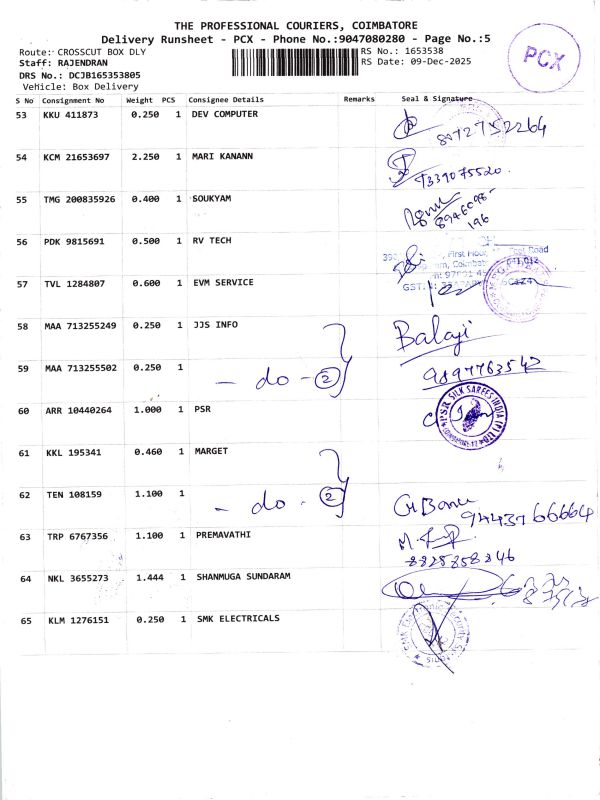 THE PROFESSIONAL COURIERS, COIMBATORE
Delivery Runsheet - PCX - Phone No.:9047080280 - Page No.:5
Route: CROSSCUT BOX DLY
RS No.: 1653538
Staff: RAJENDRAN
RS Date: 09-Dec-2025
DRS No.: DCJB165353805
Vehicle: Box Delivery
PCX
S No Consignment No Weight PCS Consignee Details Remarks Seal & Signature
53 KKU 411873 0.250 1 DEV COMPUTER
8072752264
54 KCM 21653697 2.250 1 MARI KANANN
9339075520.
55 TMG 200835926 0.400 1 SOUKYAM
8946098-
196
56 PDK 9815691 0.500 1 RV TECH
First Floor, Road
641 012
57 TVL 1284807 0.600 1 EVM SERVICE
GST.
58 MAA 713255249 0.250 1 JJS INFO
Balaji
59 MAA 713255502 0.250 1
- do - 2
9897763542
60 ARR 10440264 1.000 1 PSR
P.S.R SILK SAREES INDIA (P) LTD
61 KKL 195341 0.460 1 MARGET
62 TEN 108159 1.100 1
- do - 2
9443766664
63 TRP 6767356 1.100 1 PREMAVATHI
8825858846
64 NKL 3655273 1.444 1 SHANMUGA SUNDARAM
65 KLM 1276151 0.250 1 SMK ELECTRICALS